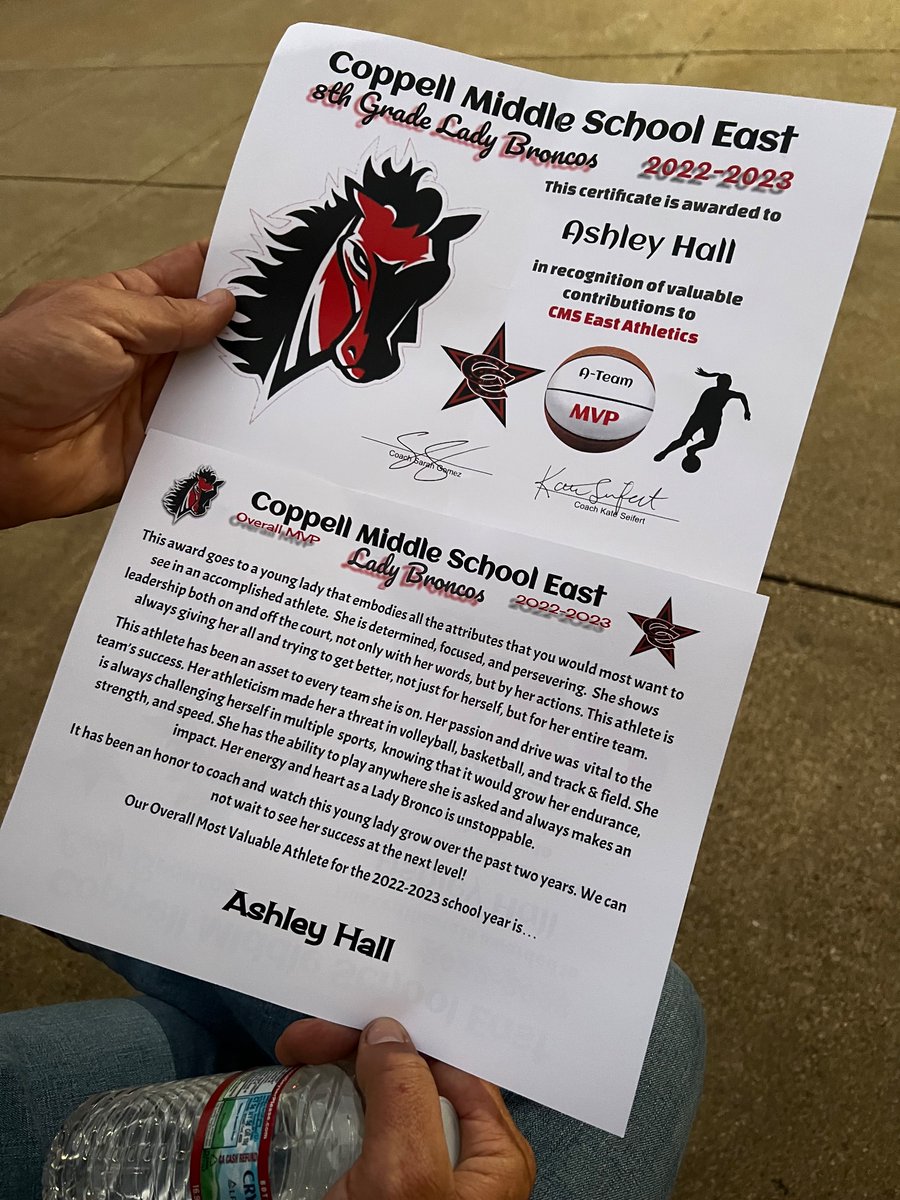 Coppell Middle School East
8th Grade Lady Broncos
2022-2023
This certificate is awarded to
Ashley Hall
in recognition of valuable
contributions to
CMS East Athletics
A-Team
MVP
Coach Sarah Gomez
Kate Seifert
Coach Kate Seifert
Coppell Middle School East
Overall MVP
Lady Broncos
2022-2023
This award goes to a young lady that embodies all the attributes that you would most want to
see in an accomplished athlete. She is determined, focused, and persevering. She shows
leadership both on and off the court, not only with her words, but by her actions. This athlete is
always giving her all and trying to get better, not just for herself, but for her entire team.
This athlete has been an asset to every team she is on. Her passion and drive was vital to the
team's success. Her athleticism made her a threat in volleyball, basketball, and track & field. She
is always challenging herself in multiple sports, knowing that it would grow her endurance,
strength, and speed. She has the ability to play anywhere she is asked and always makes an
impact. Her energy and heart as a Lady Bronco is unstoppable.
It has been an honor to coach and watch this young lady grow over the past two years. We can
not wait to see her success at the next level!
Our Overall Most Valuable Athlete for the 2022-2023 school year is...
Ashley Hall
CA CASH REFUND
CRY